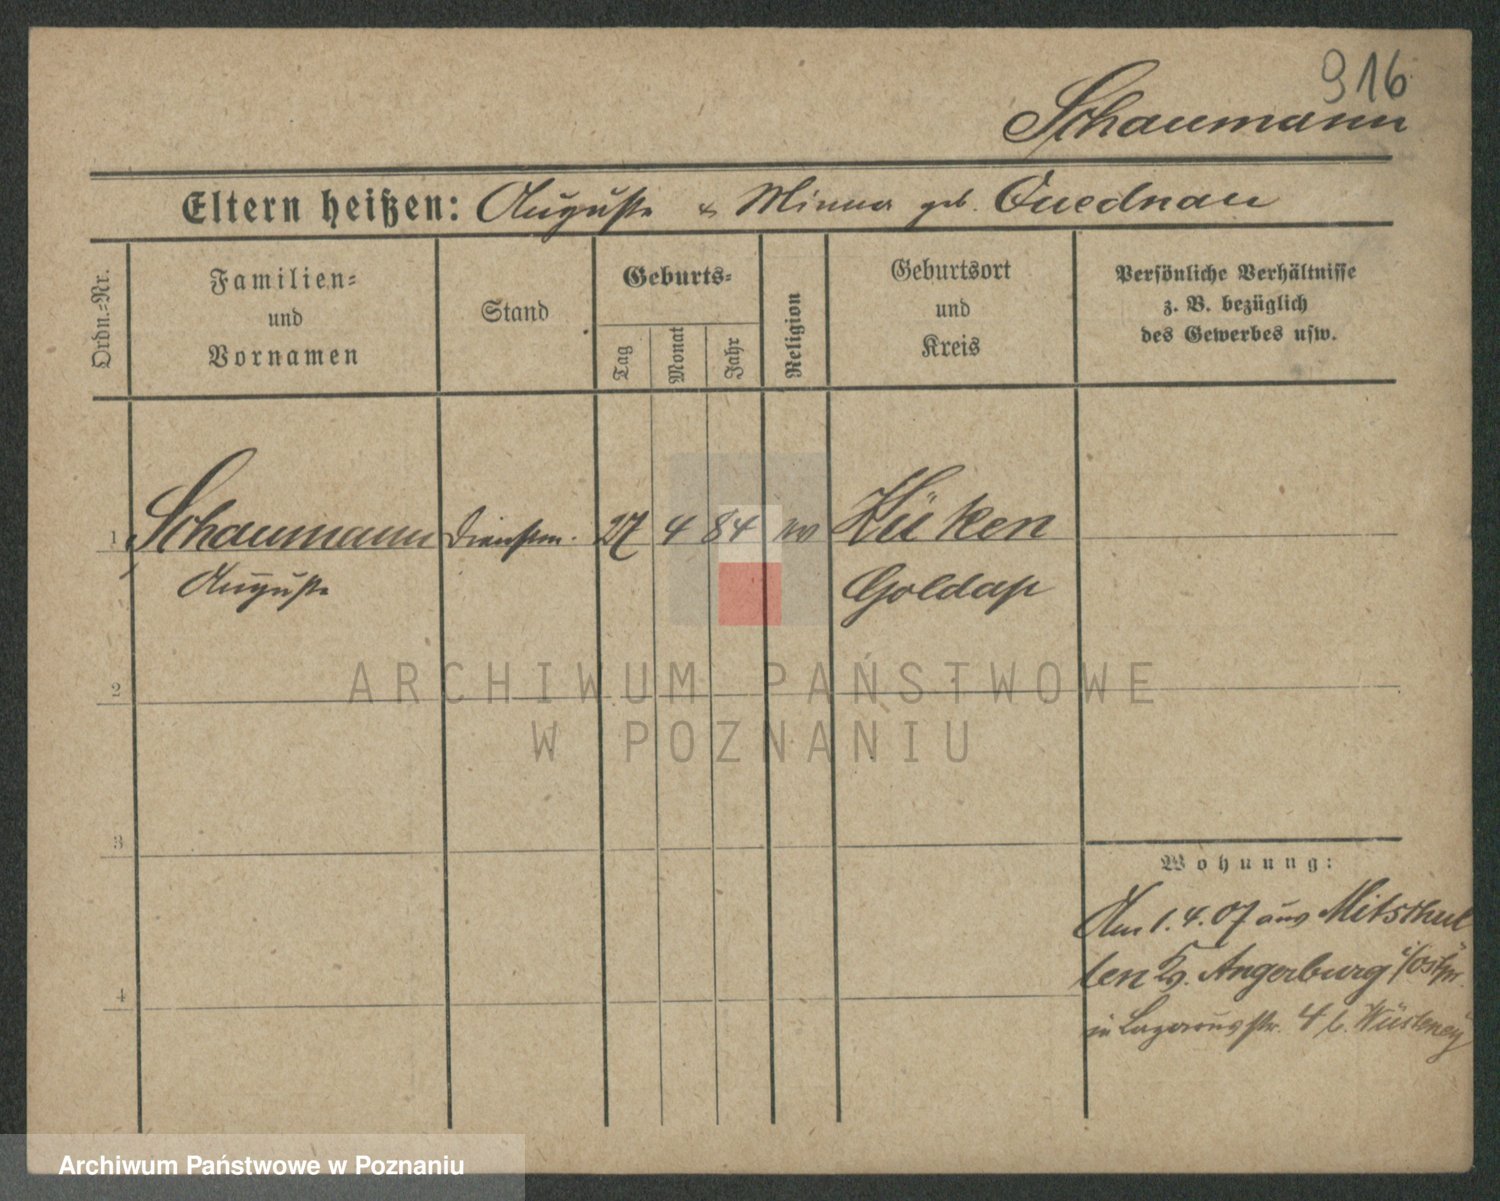 916
Schaumann
Eltern heißen: Auguste & Minna geb. Quednau
Ordn.-Nr.
Familien-
und
Vornamen
Stand
Geburts-
Tag
Monat
Jahr
Religion
Geburtsort
und
Kreis
Persönliche Verhältnisse
z. B. bezüglich
des Gewerbes usw.
1 Schaumann Dienstm. 27 4 84 Züken
Auguste Goldap
2
ARCHIWUM PAŃSTWOWE
W POZNANIU
3
Wohnung:
Am 1.4.07 aus Mitschul
len Ks. Angerburg i/Ostpr.
in Lazarusstr. 4 b. Wüsteney
4
Archiwum Państwowe w Poznaniu